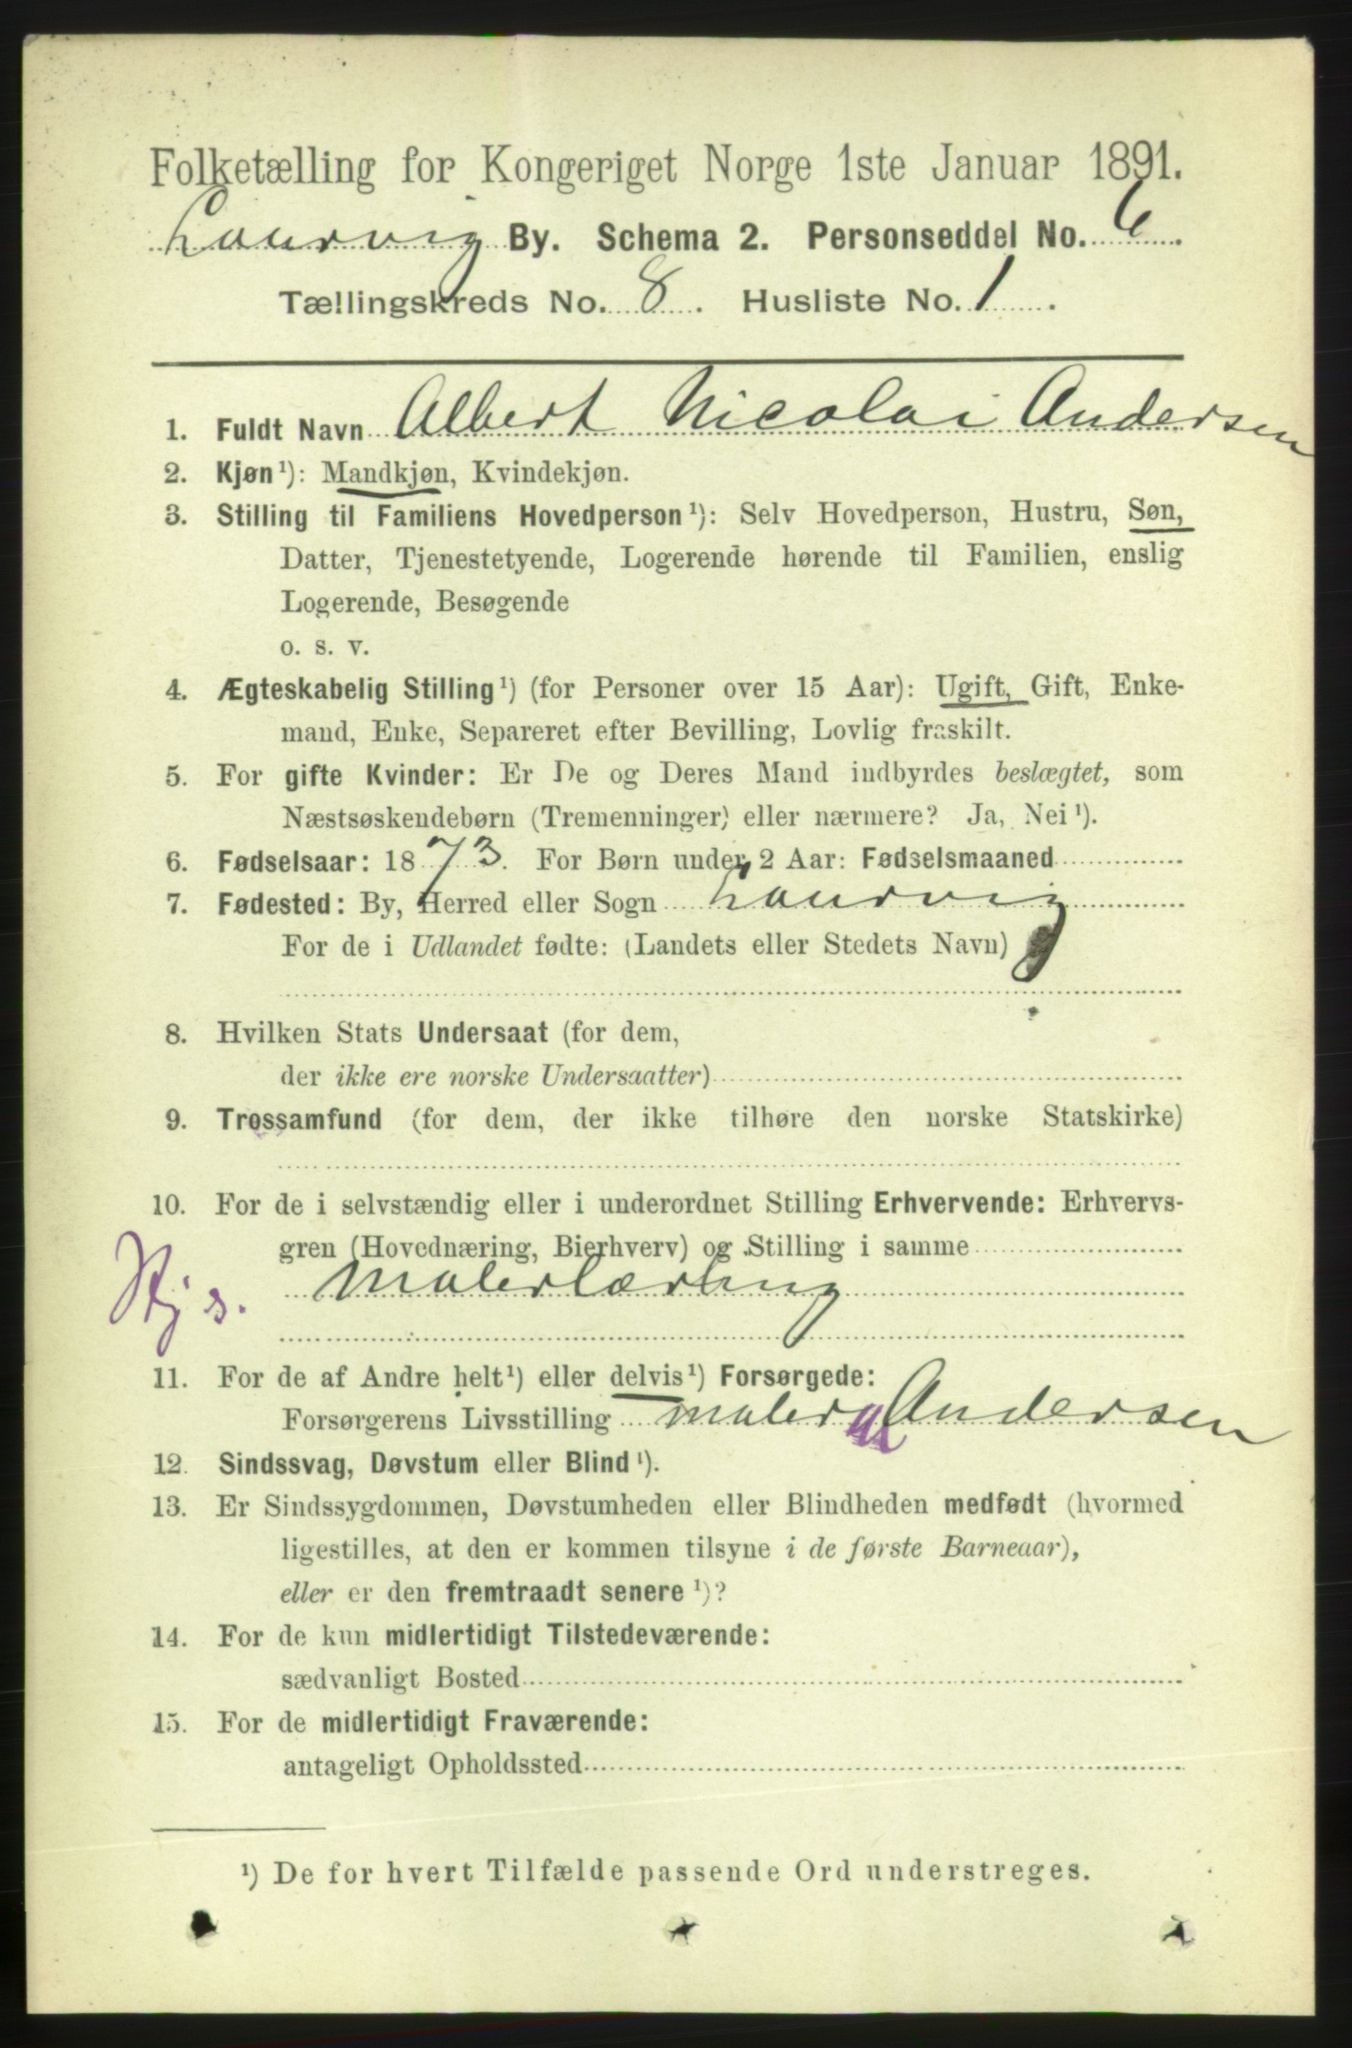 Folketælling for Kongeriget Norge 1ste Januar 1891.
Laurvig By. Schema 2. Personseddel No. 6.
Tællingskreds No. 8. Husliste No. 1.
1. Fuldt Navn Albert Nicolai Andersen
2. Kjøn¹): Mandkjøn, Kvindekjøn.
3. Stilling til Familiens Hovedperson¹): Selv Hovedperson, Hustru, Søn,
Datter, Tjenestetyende, Logerende hørende til Familien, enslig
Logerende, Besøgende
o. s. v.
4. Ægteskabelig Stilling¹) (for Personer over 15 Aar): Ugift, Gift, Enke-
mand, Enke, Separeret efter Bevilling, Lovlig fraskilt.
5. For gifte Kvinder: Er De og Deres Mand indbyrdes beslægtet, som
Næstsøskendebørn (Tremenninger) eller nærmere? Ja, Nei¹).
6. Fødselsaar: 1873. For Børn under 2 Aar: Fødselsmaaned
7. Fødested: By, Herred eller Sogn Laurvig
For de i Udlandet fødte: (Landets eller Stedets Navn)
8. Hvilken Stats Undersaat (for dem,
der ikke ere norske Undersaatter)
9. Trossamfund (for dem, der ikke tilhøre den norske Statskirke)
10. For de i selvstændig eller i underordnet Stilling Erhvervende: Erhvervs-
gren (Hovednæring, Bierhverv) og Stilling i samme
Malerlærling
11. For de af Andre helt¹) eller delvis¹) Forsørgede:
Forsørgerens Livsstilling maler Andersen
12. Sindssvag, Døvstum eller Blind¹).
13. Er Sindssygdommen, Døvstumheden eller Blindheden medfødt (hvormed
ligestilles, at den er kommen tilsyne i de første Barneaar),
eller er den fremtraadt senere¹)?
14. For de kun midlertidigt Tilstedeværende:
sædvanligt Bosted
15. For de midlertidigt Fraværende:
antageligt Opholdssted
¹) De for hvert Tilfælde passende Ord understreges.